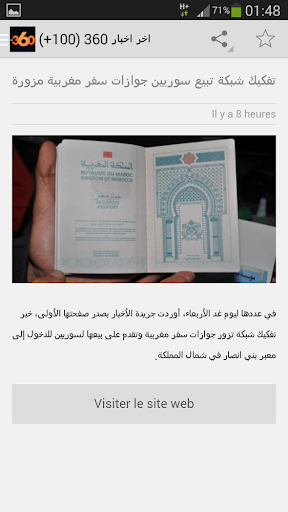 H+
01:48
360
اخر اخبار 360 (+100)
تفكيك شبكة تبيع سوريين جوازات سفر مغربية مزورة
Il y a 8 heures
المملكة المغربية
ROYAUME DU MAROC
KINGDOM OF MOROCCO
جواز سفر
PASSEPORT
PASSPORT
في عددها ليوم غد الأربعاء، أوردت جريدة الأخبار بصدر صفحتها الأولى، خبر
تفكيك شبكة تزور جوازات سفر مغربية وتقدم على بيعها لسوريين للدخول إلى
معبر بني انصار في شمال المملكة.
Visiter le site web